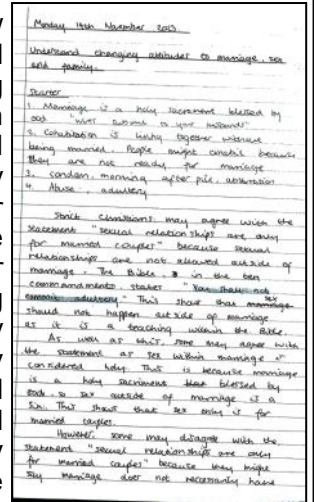 Monday 14th November 2013
Understand changing attitudes to marriage, sex
and family.
Starter
1. Marriage is a holy sacrament blessed by
God "wives submit to your husbands"
2. Cohabitation is living together without
being married. People might cohabit because
they are not ready for marriage
3. condom, morning after pill, abstention
4. Abuse, adultery
Strict Christians may agree with the
statement "sexual relationships are only
for married couples" because sexual
relationships are not allowed outside of
marriage. The Bible, in the ten
commandments, states "You shall not
commit adultery". This shows that sex
should not happen outside of marriage
as it is a teaching within the Bible.
As well as this, some may agree with
the statement as sex within marriage is
considered holy. This is because marriage
is a holy sacrament that blessed by
God, so sex outside of marriage is a
sin. This shows that sex only is for
married couples.
However, some may disagree with the
statement "sexual relationships are only
for married couples" because they might
say marriage does not necessarily have